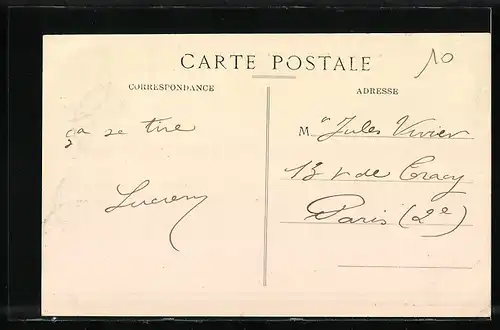 CARTE POSTALE
10
CORRESPONDANCE
ADRESSE
ça se tire
Lucien
Mr Jules Vivier
13 r de Cracy
Paris (2e)